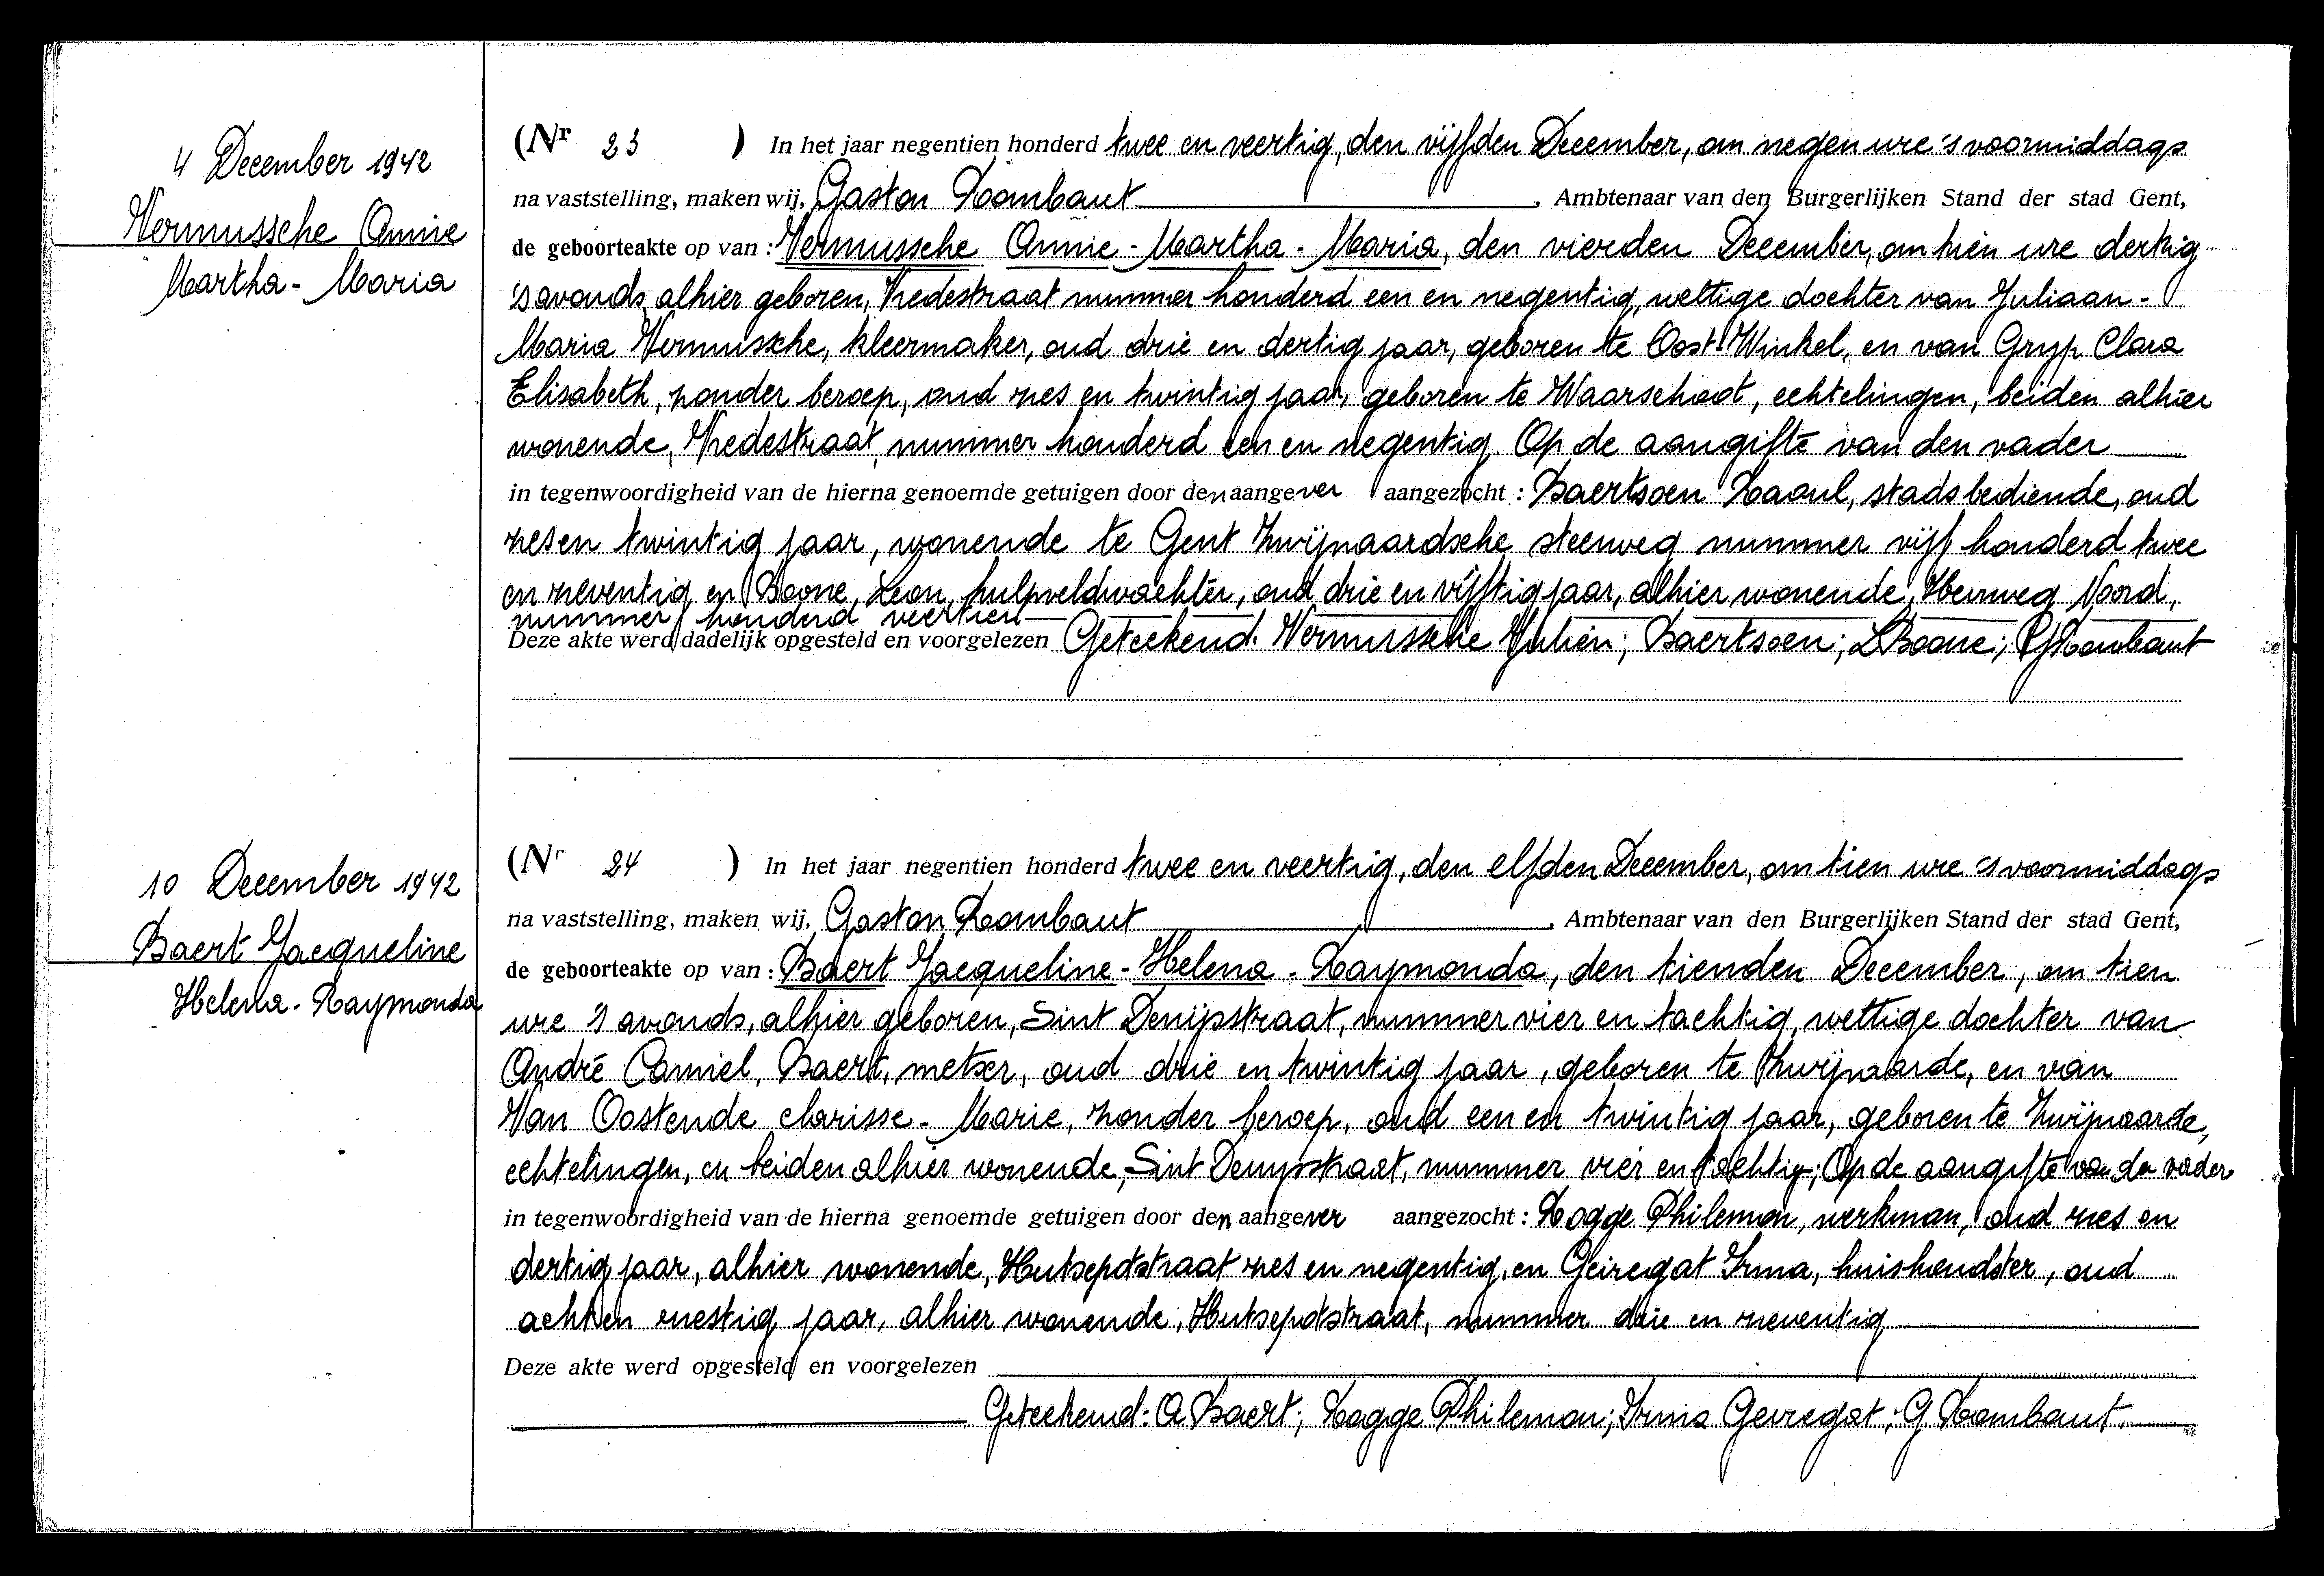 4 December 1942
Vermussche Annie
Martha - Maria
(Nr 23 ) In het jaar negentien honderd twee en veertig, den vijfden December, om negen ure 's voormiddags
na vaststelling, maken wij, Gaston Rombaut , Ambtenaar van den Burgerlijken Stand der stad Gent,
de geboorteakte op van : Vermussche Annie - Martha - Maria, den vierden December, om tien ure dertig
's avonds alhier geboren, Vredestraat nummer honderd een en negentig, wettige dochter van Juliaan -
Maria Vermussche, kleermaker, oud drie en dertig jaar, geboren te Oost-Winkel, en van Gryp Clara
Elisabeth, zonder beroep, oud zes en twintig jaar, geboren te Waarschoot, echtelingen, beiden alhier
wonende, Vredestraat, nummer honderd een en negentig. Op de aangifte van den vader
in tegenwoordigheid van de hierna genoemde getuigen door den aangever aangezocht : Baertsoen Raoul, stadsbediende, oud
zes en twintig jaar, wonende te Gent Zwijnaardsche steenweg nummer vijf honderd twee
en zeventig en Boone, Leon, hulpveldwachter, oud drie en vijftig jaar, alhier wonende, Heerweg Noord,
nummer honderd veertien
Deze akte werd dadelijk opgesteld en voorgelezen Geteekend: Vermussche Julien; Baertsoen; L Boone; G Rombaut
10 December 1942
Baert Jacqueline
Helena - Raymonda
(Nr 24 ) In het jaar negentien honderd twee en veertig, den elfden December, om tien ure 's voormiddags
na vaststelling, maken wij, Gaston Rombaut , Ambtenaar van den Burgerlijken Stand der stad Gent,
de geboorteakte op van : Baert Jacqueline - Helena - Raymonda, den tienden December, om tien
ure 's avonds, alhier geboren, Sint Denijsstraat, nummer vier en tachtig, wettige dochter van
André Camiel, Baert, metser, oud drie en twintig jaar, geboren te Zwijnaarde, en van
Van Oostende Clarisse - Marie, zonder beroep, oud een en twintig jaar, geboren te Zwijnaarde,
echtelingen, en beiden alhier wonende, Sint Denijsstraat, nummer vier en tachtig; Op de aangifte van den vader
in tegenwoordigheid van de hierna genoemde getuigen door den aangever aangezocht : Rogge Philemon, werkman, oud zes en
dertig jaar, alhier wonende, Hutsepotstraat zes en negentig, en Geiregat Irma, huishoudster, oud
acht en zestig jaar, alhier wonende, Hutsepotstraat, nummer drie en zeventig
Deze akte werd opgesteld en voorgelezen
Geteekend: A Baert; Rogge Philemon; Irma Gevregat; G Rombaut.